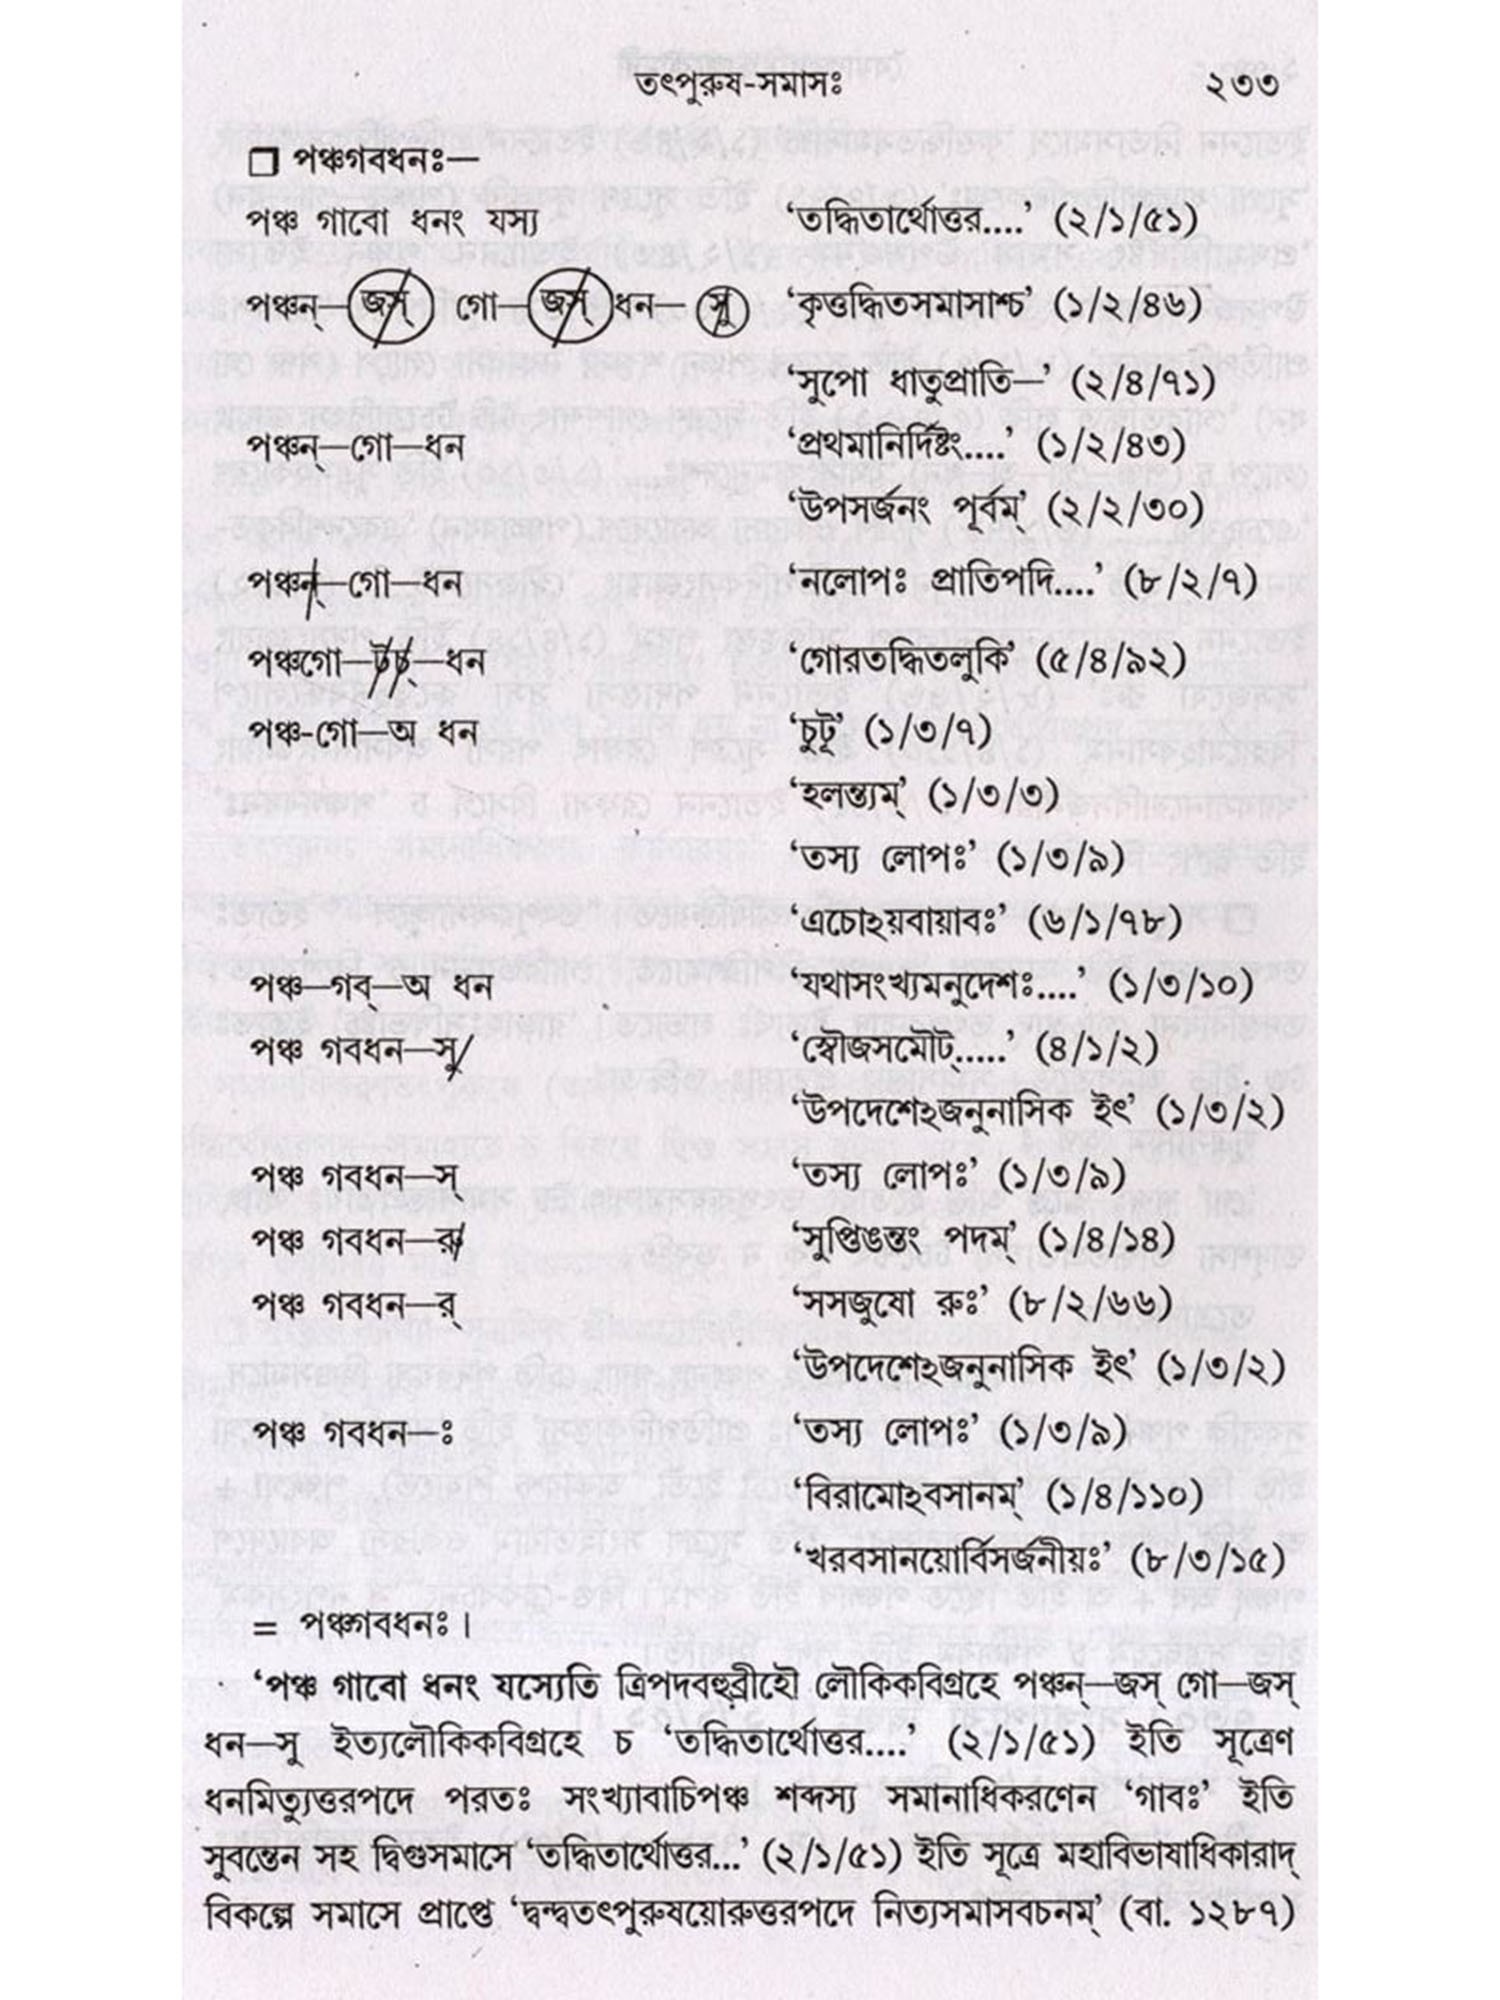 তৎপুরুষ-সমাসঃ ২৩৩
❒ পঞ্চগবধনঃ—
পঞ্চ গাবো ধনং যস্য ‘তদ্ধিতার্থোত্তর....’ (২/১/৫১)
পঞ্চন্—জস্ গো—জস্ ধন—সু ‘কৃত্তদ্ধিতসমাসাশ্চ’ (১/২/৪৬)
‘সুপো ধাতুপ্রাতি—’ (২/৪/৭১)
পঞ্চন্—গো—ধন ‘প্রথমানির্দিষ্টং....’ (১/২/৪৩)
‘উপসর্জনং পূর্বম্’ (২/২/৩০)
পঞ্চন্—গো—ধন ‘নলোপঃ প্রাতিপদি....’ (৮/২/৭)
পঞ্চগো—টচ্—ধন ‘গোরতদ্ধিতলুকি’ (৫/৪/৯২)
পঞ্চ-গো—অ ধন ‘চুটূ’ (১/৩/৭)
‘হলন্ত্যম্’ (১/৩/৩)
‘তস্য লোপঃ’ (১/৩/৯)
‘এচোঽয়বায়াবঃ’ (৬/১/৭৮)
পঞ্চ—গব্—অ ধন ‘যথাসংখ্যমনুদেশঃ....’ (১/৩/১০)
পঞ্চ গবধন—সু ‘স্বৌজসমৌট্.....’ (৪/১/২)
‘উপদেশেঽজনুনাসিক ইৎ’ (১/৩/২)
পঞ্চ গবধন—স্ ‘তস্য লোপঃ’ (১/৩/৯)
পঞ্চ গবধন—রু ‘সুপ্তিঙন্তং পদম্’ (১/৪/১৪)
পঞ্চ গবধন—র্ ‘সসজুষো রুঃ’ (৮/২/৬৬)
‘উপদেশেঽজনুনাসিক ইৎ’ (১/৩/২)
পঞ্চ গবধন—ঃ ‘তস্য লোপঃ’ (১/৩/৯)
‘বিরামোঽবসানম্’ (১/৪/১১০)
‘খরবসানয়োর্বিসর্জনীয়ঃ’ (৮/৩/১৫)
= পঞ্চগবধনঃ।
‘পঞ্চ গাবো ধনং যস্যেতি ত্রিপদবহুব্রীহৌ লৌকিকবিগ্রহে পঞ্চন্—জস্ গো—জস্
ধন—সু ইত্যলৌকিকবিগ্রহে চ ‘তদ্ধিতার্থোত্তর....’ (২/১/৫১) ইতি সূত্রেণ
ধনমিত্যুত্তরপদে পরতঃ সংখ্যাবাচিপঞ্চ শব্দস্য সমানাধিকরণেন ‘গাবঃ’ ইতি
সুবন্তেন সহ দ্বিগুসমাসে ‘তদ্ধিতার্থোত্তর...’ (২/১/৫১) ইতি সূত্রে মহাবিভাষাধিকারাদ্
বিকল্পে সমাসে প্রাপ্তে ‘দ্বন্দ্বতৎপুরুষয়োরুত্তরপদে নিত্যসমাসবচনম্’ (বা. ১২৮৭)